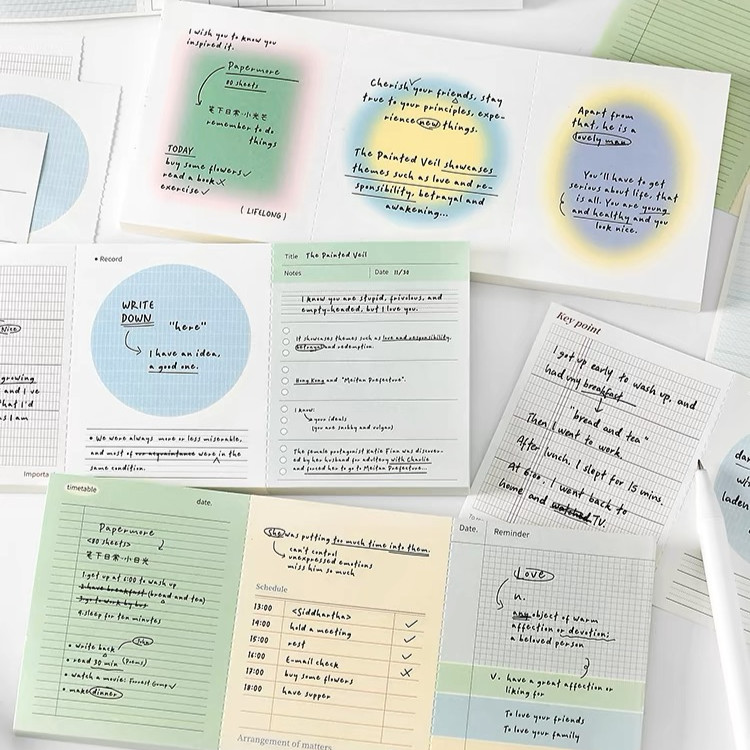 I wish you to know you
inspired it.
Papermore
80 sheets
笔下日常·小光芒
remember to do
things
TODAY
buy some flowers✓
read a book✗
exercise✓
(LIFELONG)
Cherish your friends, stay
true to your principles, expe-
rience new things.
The Painted Veil showcases
themes such as love and re-
sponsibility, betrayal and
awakening...
Apart from
that, he is a
lovely man
You'll have to get
serious about life, that
is all. You are young
and healthy and you
look nice.
Nice
growing
and I've
that I'd
as I am
Importa
• Record
WRITE
DOWN
"here"
I have an idea,
a good one.
• We were always more or less miserable,
and most of our acquaintance were in the
same condition.
Title The Painted Veil
Notes Date 11/30
I know you are stupid, frivolous, and
empty-headed, but I love you.
It showcases themes such as love and responsibility,
betrayal and redemption.
Hong Kong and "Meitan Prefecture".
I know:
your ideals
(you are snobby and vulgar)
The female protagonist Katie Finn was discover-
ed by her husband for adultery with Charlie
and forced her to go to Meitan Prefecture...
Key point
I got up early to wash up, and
had my breakfast
"bread and tea"
Then I went to work.
After lunch, I slept for 15 mins.
At 6:00, I went back to
home and watched TV.
timetable
date.
Papermore
<80 sheets>
笔下日常·小日光
1.get up at 6:00 to wash up
2.have breakfast (bread and tea)
3.go to work by bus
4.sleep for ten minutes
• write back
• read 30 min (Poems)
• watch a movie: Forrest Gump✓
• make dinner
She was putting too much time into them.
can't control
unexpressed emotions
miss him so much
Schedule
13:00 <Siddhartha>
14:00 hold a meeting ✓
15:00 rest ✓
16:00 E-mail check ✓
17:00 buy some flowers ✗
18:00 have supper
Arrangement of matters
Date. Reminder
Love
n.
any object of warm
affection or devotion;
a beloved person
V. have a great affection or
liking for
To love your friends
To love your family
laden